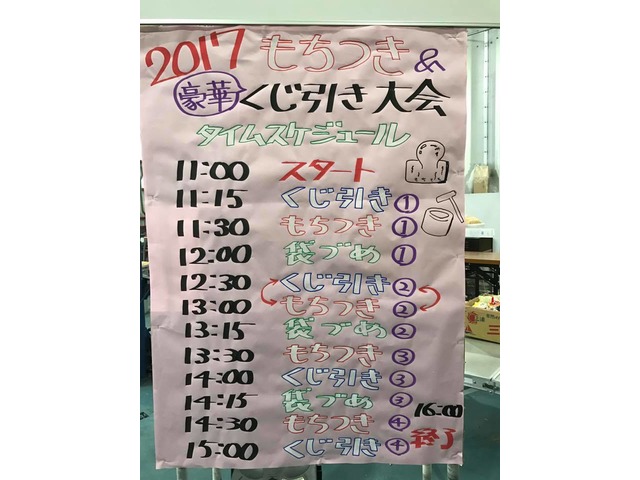 2017 もちつき &
豪華 くじ引き大会
タイムスケジュール
11:00 スタート
11:15 くじ引き ①
11:30 もちつき ①
12:00 袋づめ ①
12:30 くじ引き ②
13:00 もちつき ②
13:15 袋づめ ②
13:30 もちつき ③
14:00 くじ引き ③
14:15 袋づめ ③
14:30 もちつき ④
15:00 くじ引き ④
16:00
終了
三